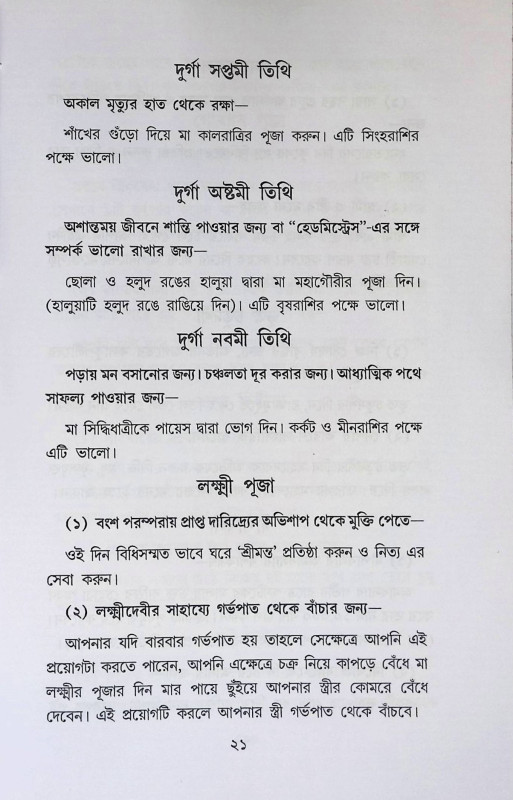 দুর্গা সপ্তমী তিথি
অকাল মৃত্যুর হাত থেকে রক্ষা—
শাঁখের গুঁড়ো দিয়ে মা কালরাত্রির পূজা করুন। এটি সিংহরাশির
পক্ষে ভালো।
দুর্গা অষ্টমী তিথি
অশান্তময় জীবনে শান্তি পাওয়ার জন্য বা “হেডমিস্ট্রেস”-এর সঙ্গে
সম্পর্ক ভালো রাখার জন্য—
ছোলা ও হলুদ রঙের হালুয়া দ্বারা মা মহাগৌরীর পূজা দিন।
(হালুয়াটি হলুদ রঙে রাঙিয়ে দিন)। এটি বৃষরাশির পক্ষে ভালো।
দুর্গা নবমী তিথি
পড়ায় মন বসানোর জন্য। চঞ্চলতা দূর করার জন্য। আধ্যাত্মিক পথে
সাফল্য পাওয়ার জন্য—
মা সিদ্ধিধাত্রীকে পায়েস দ্বারা ভোগ দিন। কর্কট ও মীনরাশির পক্ষে
এটি ভালো।
লক্ষ্মী পূজা
(১) বংশ পরম্পরায় প্রাপ্ত দারিদ্র্যের অভিশাপ থেকে মুক্তি পেতে—
ওই দিন বিধিসম্মত ভাবে ঘরে ‘শ্রীমন্ত’ প্রতিষ্ঠা করুন ও নিত্য এর
সেবা করুন।
(২) লক্ষ্মীদেবীর সাহায্যে গর্ভপাত থেকে বাঁচার জন্য—
আপনার যদি বারবার গর্ভপাত হয় তাহলে সেক্ষেত্রে আপনি এই
প্রয়োগটা করতে পারেন, আপনি এক্ষেত্রে চক্র নিয়ে কাপড়ে বেঁধে মা
লক্ষ্মীর পূজার দিন মার পায়ে ছুঁইয়ে আপনার স্ত্রীর কোমরে বেঁধে
দেবেন। এই প্রয়োগটি করলে আপনার স্ত্রী গর্ভপাত থেকে বাঁচবে।
২১